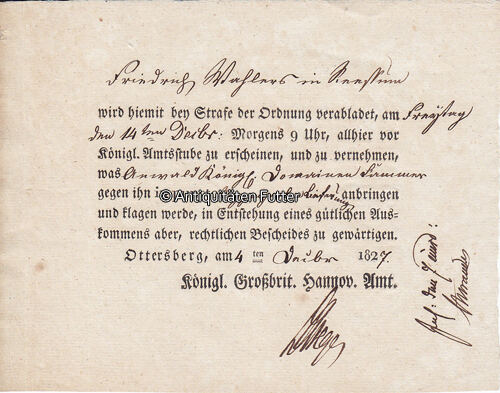 Friedrich Wahlers in Reessum
wird hiemit bey Strafe der Ordnung verabladet, am Freytag
den 14ten Decbr: Morgens 9 Uhr, allhier vor
Königl. Amtsstube zu erscheinen, und zu vernehmen,
was Anwald Königl. Domainen Cammer
gegen ihn anbringen
© Antiquitäten Futter
und klagen werde, in Entstehung eines gütlichen Aus-
kommens aber, rechtlichen Bescheides zu gewärtigen.
Ottersberg, am 4 ten Decbr 1827.
Königl. Großbrit. Hannov. Amt.
den 7